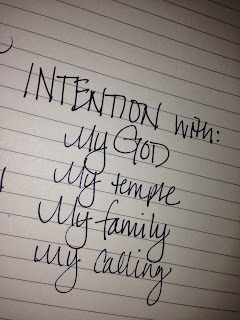 INTENTION with:
My GOD
My temple
My family
My calling